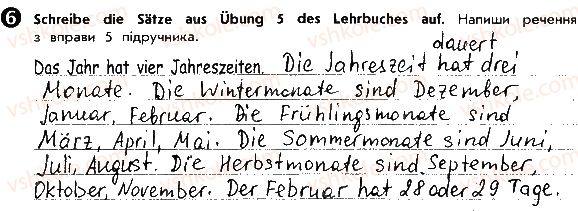 6 Schreibe die Sätze aus Übung 5 des Lehrbuches auf. Напиши речення
з вправи 5 підручника.
dauert
Das Jahr hat vier Jahreszeiten. Die Jahreszeit hat drei
Monate. Die Wintermonate sind Dezember,
Januar, Februar. Die Frühlingsmonate sind
März, April, Mai. Die Sommermonate sind Juni,
Juli, August. Die Herbstmonate sind September,
Oktober, November. Der Februar hat 28 oder 29 Tage.